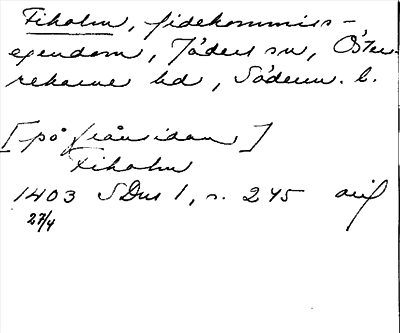 Fiholm, fidekommiss-
egendom, Jäders sn, Öster-
rekarne hd, Söderm. l.
[på frånsidan]
Fiholm
1403 SDns 1, s. 245 avif
27/4